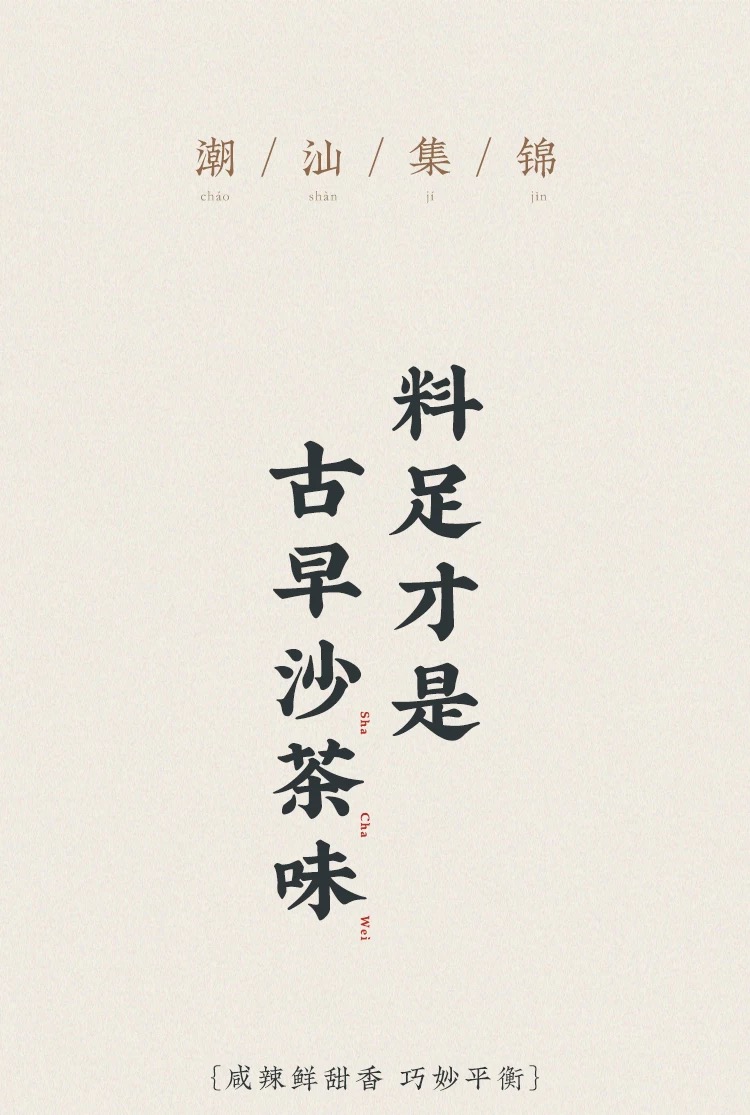 潮/汕/集/锦
cháo shàn jí jìn
料足才是
古早沙茶味
Sha Cha Wei
{咸辣鲜甜香 巧妙平衡}